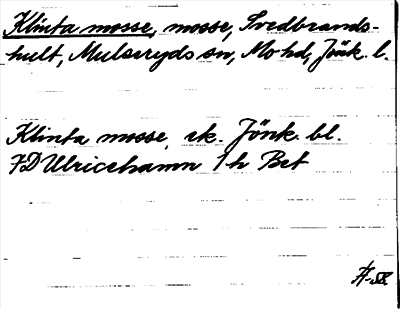 Klinta mosse, mosse, Svedbrands-
hult, Mulseryds sn, Mo hd, Jönk. l.
Klinta mosse, ek. Jönk. bl.
7D Ulricehamn 1h Bet